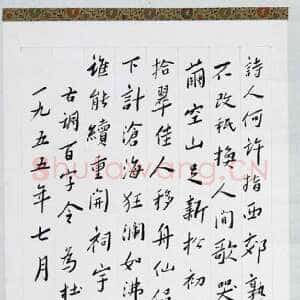 詩人何許指西郊孰
不改祇換人間歌哭
繭空山足新松初
拾翠佳人移舟仙侣
下計滄海狂瀾如沸
誰能續重開祠宇
古調百字令 為杜
一九五五年七月
Shufawang.CN